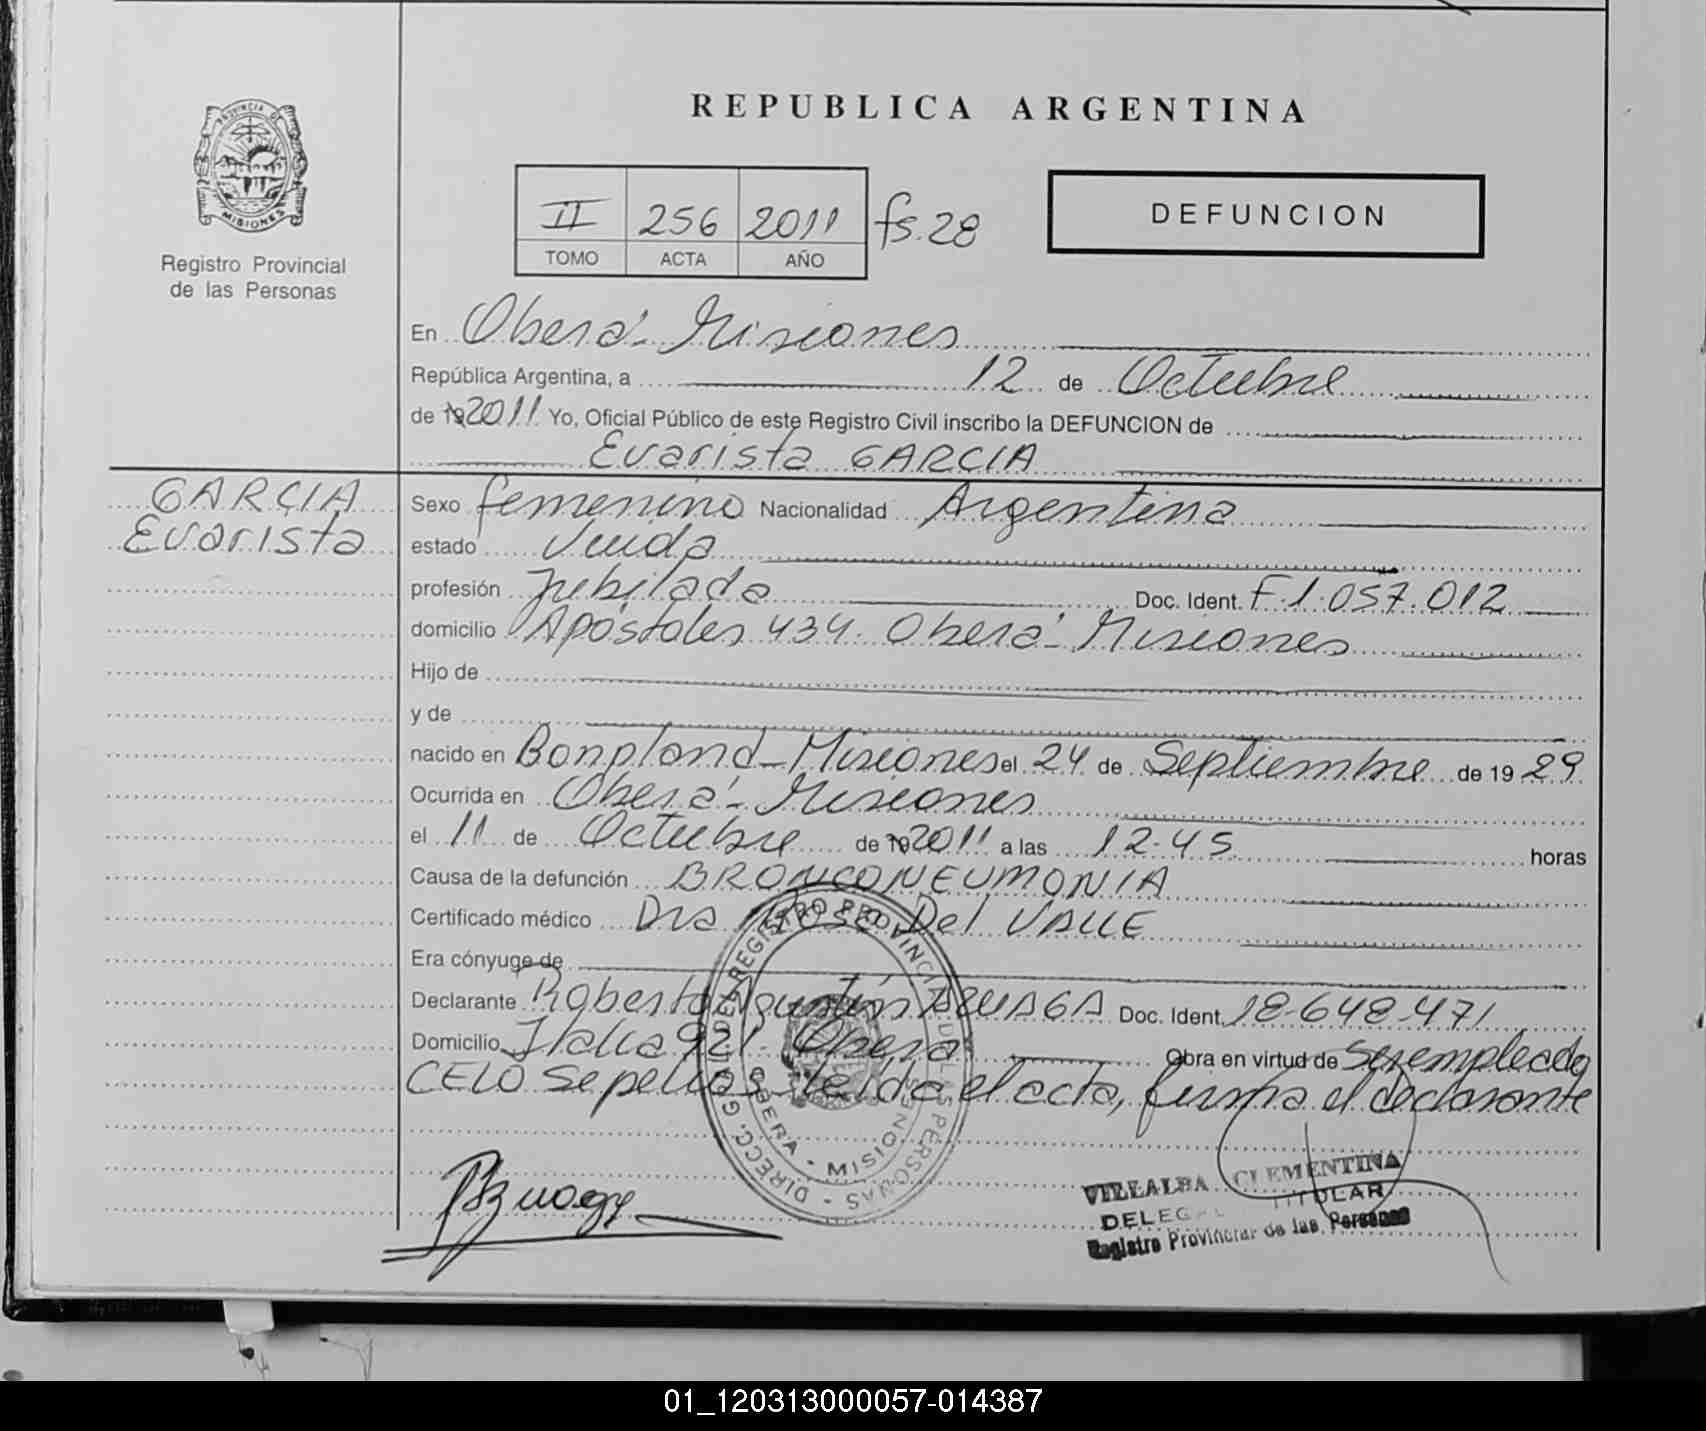 REPUBLICA ARGENTINA
PROVINCIA DE
MISIONES
Registro Provincial
de las Personas
II 256 2011 fs. 28
TOMO ACTA AÑO
DEFUNCION
En Oberá - Misiones
República Argentina, a 12 de Octubre
de 19 2011 Yo, Oficial Público de este Registro Civil inscribo la DEFUNCION de
Evarista GARCIA
GARCIA
Evarista
Sexo femenino Nacionalidad Argentina
estado Viuda
profesión Jubilada Doc. Ident. F. 1.057.012
domicilio Apóstoles 434. Oberá - Misiones
Hijo de
y de
nacido en Bonpland - Misiones el 24 de Septiembre de 19 29
Ocurrida en Oberá - Misiones
el 11 de Octubre de 19 2011 a las 12.45 horas
Causa de la defunción BRONCONEUMONIA
Certificado médico Dra Del VALLE
Era cónyuge de
Declarante Roberto Agustín AZUAGA Doc. Ident. 18.648.471
Domicilio Italia 921. Oberá Obra en virtud de ser empleado
CELO Sepelios. Leída el acta, firma el declarante
DIRECC. GRAL. DEL REGISTRO PROVINCIAL DE LAS PERSONAS
OBERA - MISIONES
VILLALBA CLEMENTINA
TITULAR
Registro Provincial de las Personas
01_120313000057-014387